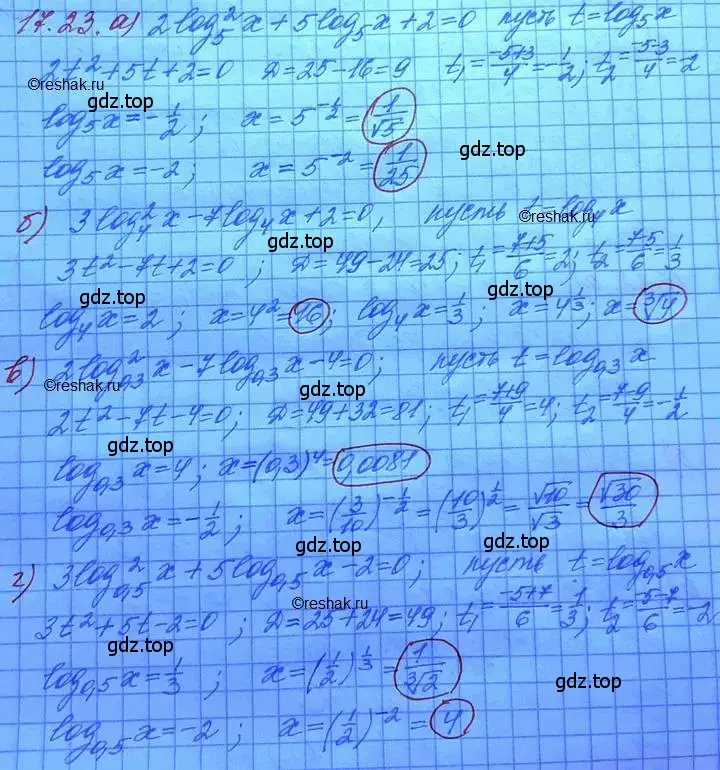 17.23. а) 2log₅²x + 5log₅x + 2 = 0 пусть t = log₅x
2t² + 5t + 2 = 0 Д = 25 − 16 = 9 t₁ = (−5+3)/4 = −1/2; t₂ = (−5−3)/4 = −2
©reshak.ru гдз.top
log₅x = −1/2; x = 5^(−1/2) = 1/√5
гдз.top
log₅x = −2; x = 5⁻² = 1/25
б) 3log₄²x − 7log₄x + 2 = 0, пусть t = log₄x
©reshak.ru
гдз.top
3t² − 7t + 2 = 0; Д = 49 − 24 = 25; t₁ = (7+5)/6 = 2; t₂ = (7−5)/6 = 1/3
гдз.top гдз.top
log₄x = 2; x = 4² = 16; log₄x = 1/3; x = 4^(1/3); x = ∛4
в) 2log₀,₃²x − 7log₀,₃x − 4 = 0; пусть t = log₀,₃x
©reshak.ru гдз.top
2t² − 7t − 4 = 0; Д = 49 + 32 = 81; t₁ = (7+9)/4 = 4; t₂ = (7−9)/4 = −1/2
гдз.top
log₀,₃x = 4; x = (0,3)⁴ = 0,0081
log₀,₃x = −1/2; x = (3/10)^(−1/2) = (10/3)^(1/2) = √10/√3 = √30/3
гдз.top
г) 3log₀,₅²x + 5log₀,₅x − 2 = 0; пусть t = log₀,₅x
©reshak.ru
3t² + 5t − 2 = 0; Д = 25 + 24 = 49; t₁ = (−5+7)/6 = 1/3; t₂ = (−5−7)/6 = −2
гдз.top
log₀,₅x = 1/3; x = (1/2)^(1/3) = 1/∛2
гдз.top
log₀,₅x = −2; x = (1/2)⁻² = 4